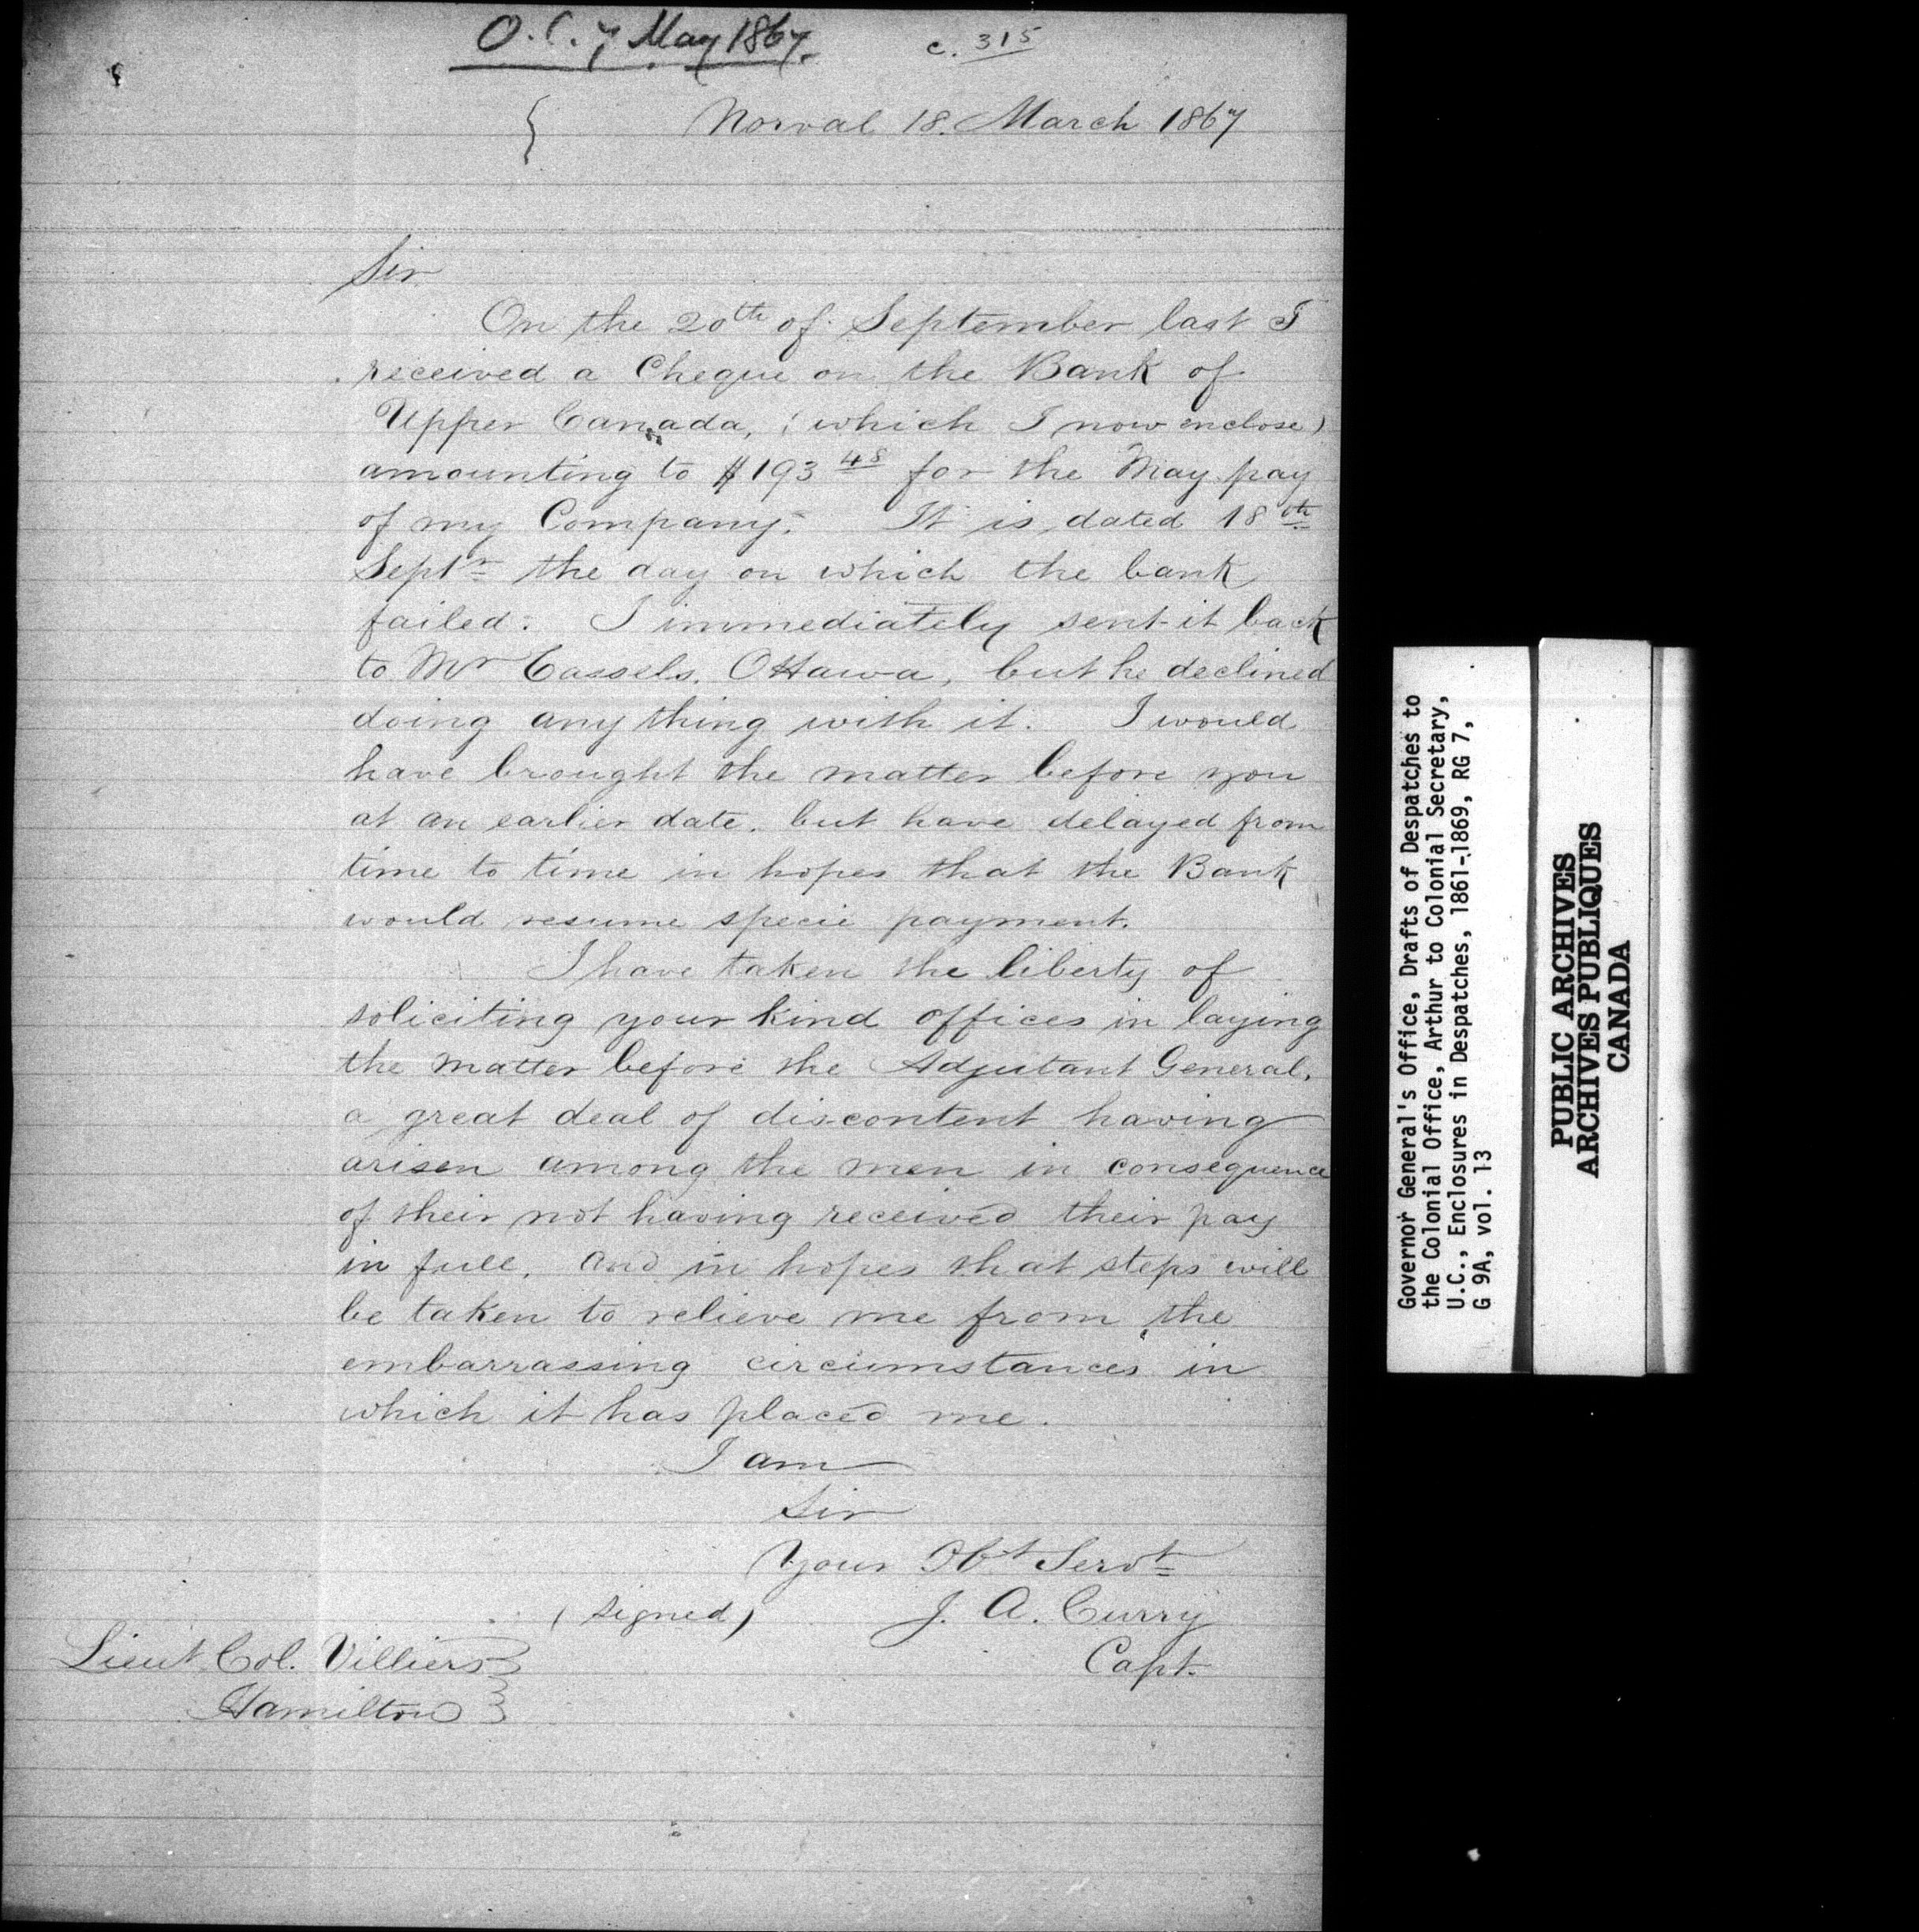 O.C. 7 May 1867.
c. 315
Norval 18. March 1867
Sir
On the 20th of September last I
received a Cheque on the Bank of
Upper Canada, (which I now enclose)
amounting to $193 48 for the May pay
of my Company. It is dated 18th
Septr the day on which the bank
failed. I immediately sent it back
to Mr Cassels, Ottawa, but he declined
doing any thing with it. I would
have brought the matter before you
at an earlier date, but have delayed from
time to time in hopes that the Bank
would resume specie payment.
I have taken the liberty of
soliciting your kind offices in laying
the matter before the Adjutant General,
a great deal of discontent having
arisen among the men in consequence
of their not having received their pay
in full, and in hopes that steps will
be taken to relieve me from the
embarrassing circumstances in
which it has placed me.
I am
Sir
Your Obt Servt
(signed) J. A. Curry
Capt.
Lieut Col. Villiers
Hamilton
Governor General's Office, Drafts of Despatches to
the Colonial Office, Arthur to Colonial Secretary,
U.C., Enclosures in Despatches, 1861-1869, RG 7,
G 9A, vol. 13
PUBLIC ARCHIVES
ARCHIVES PUBLIQUES
CANADA